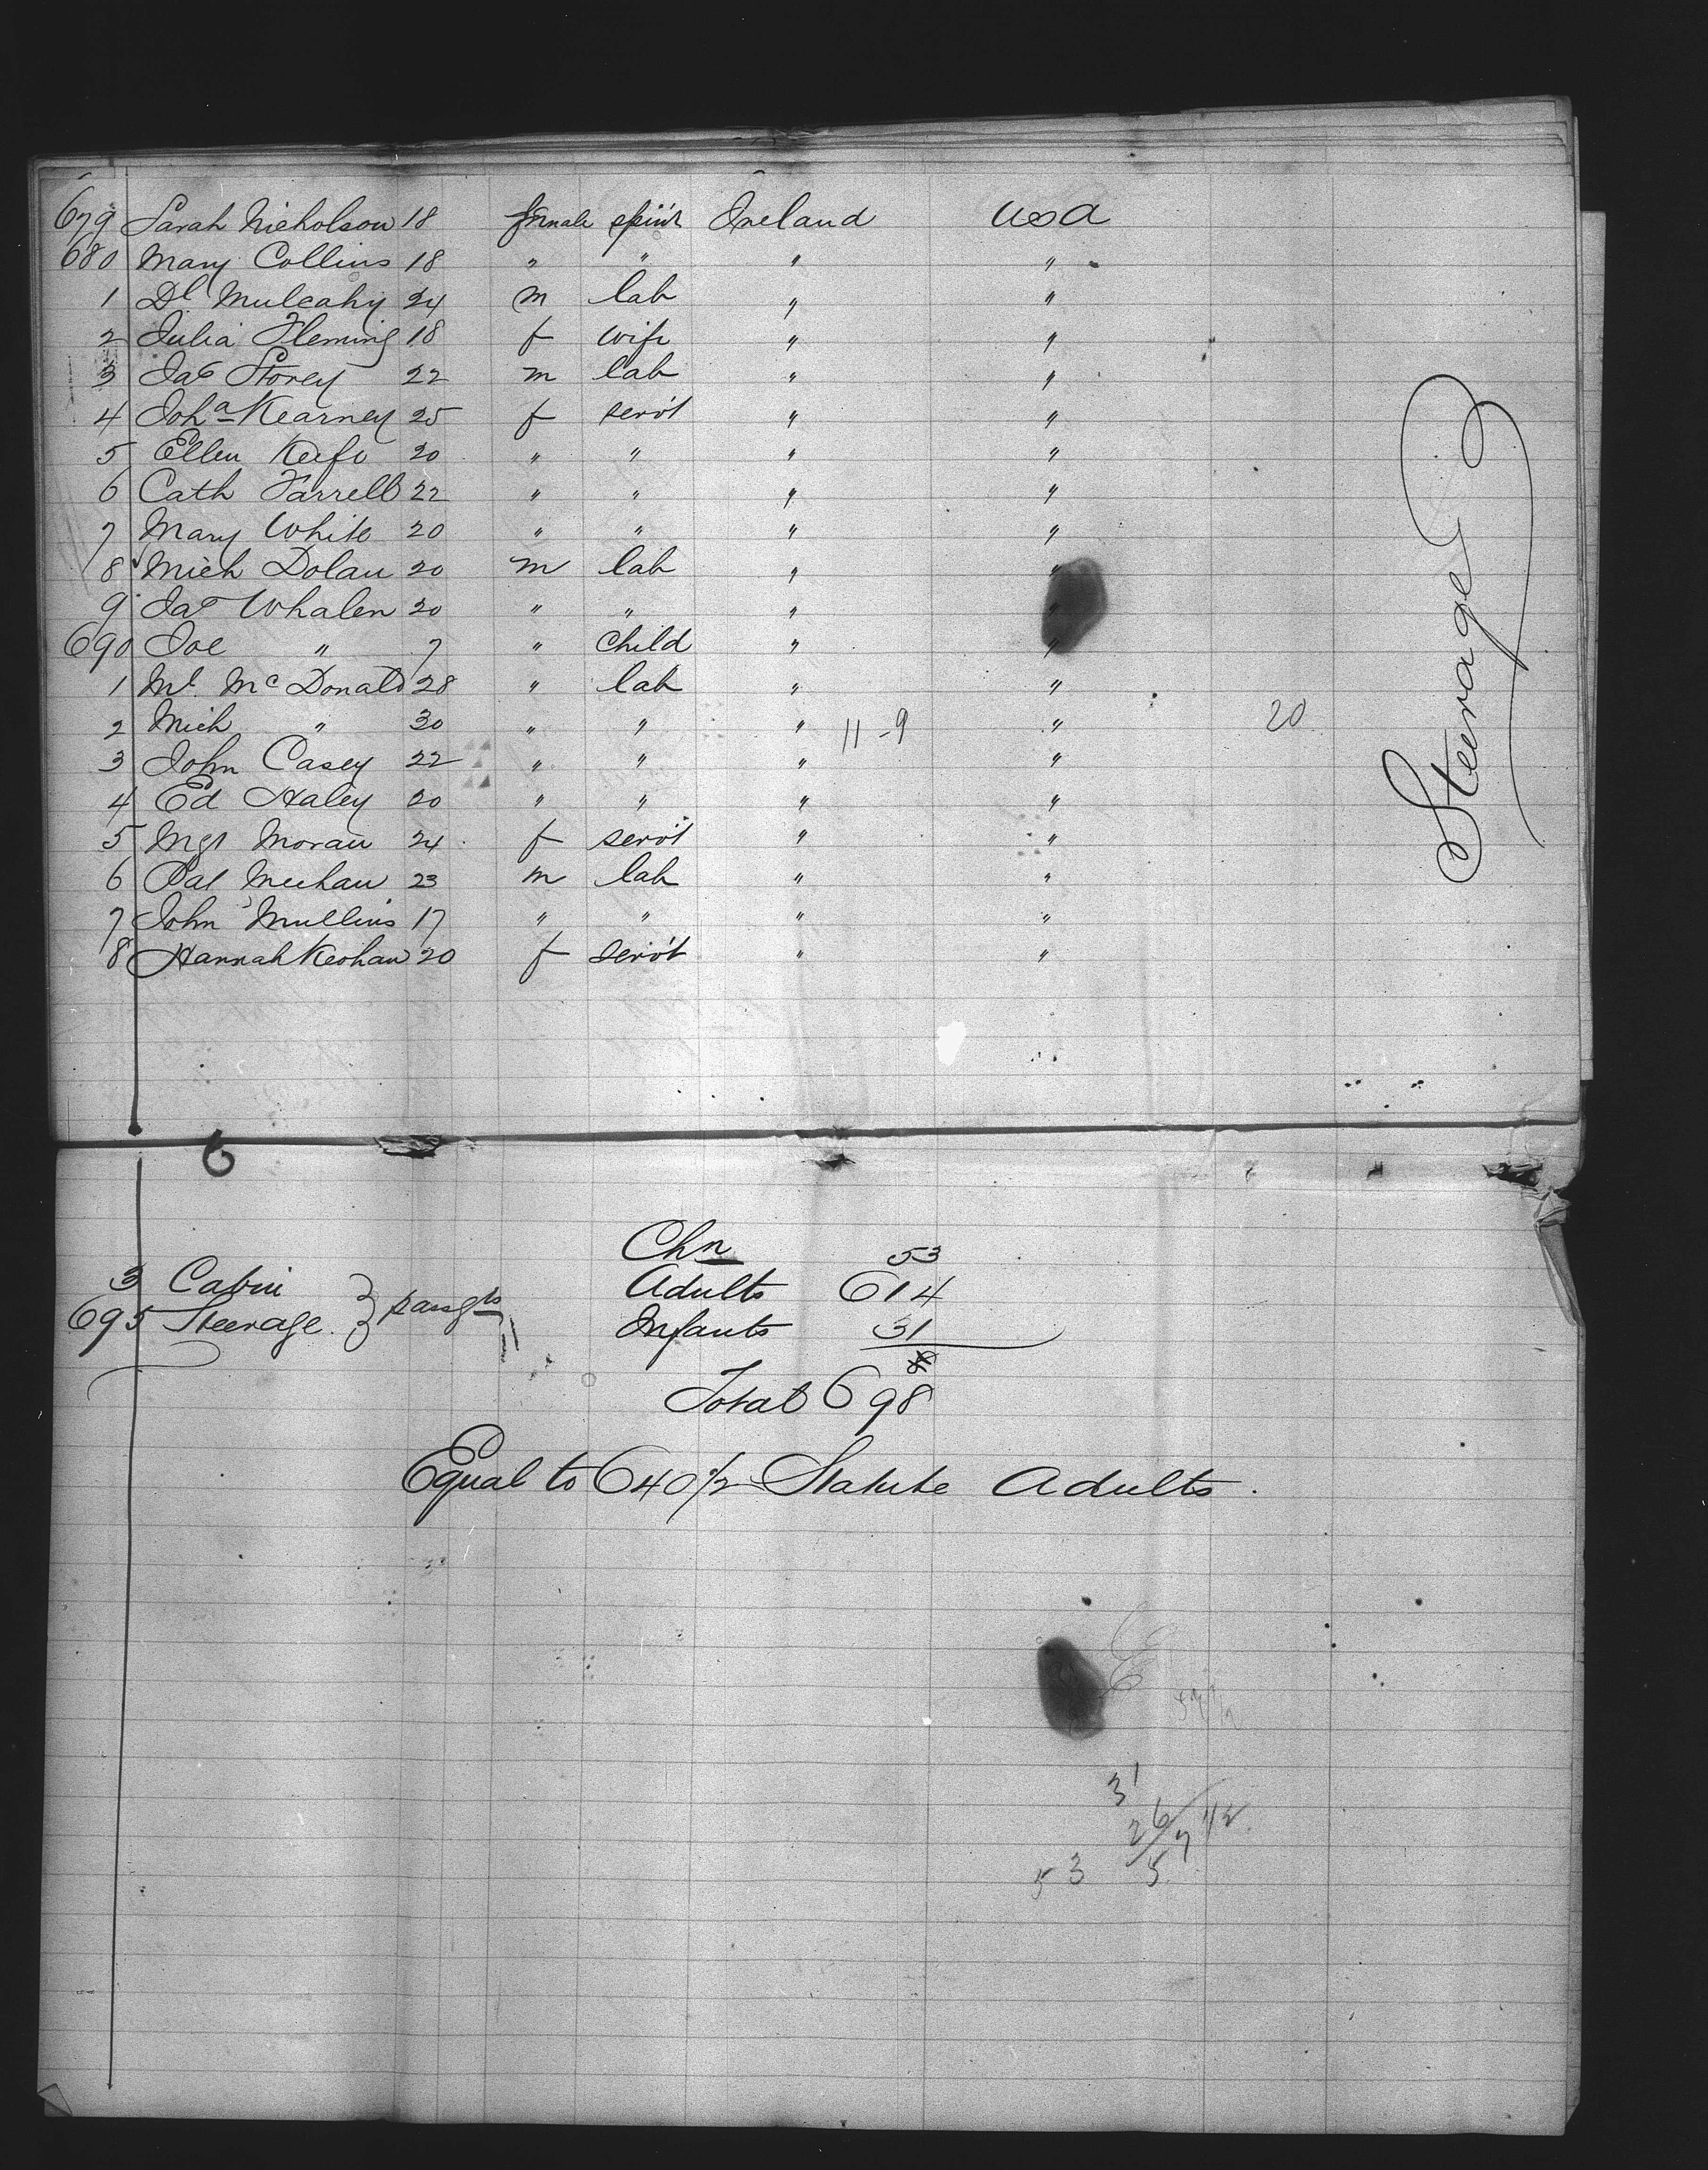 679 Sarah Nicholson 18 female spin'r Ireland USA
680 Mary Collins 18 " " " "
1 Dl Mulcahy 24 m lab " "
2 Julia Fleming 18 f wife " "
3 Jas Storey 22 m lab " "
4 Joha Kearney 25 f serv't " "
5 Ellen Keefe 20 " " " "
6 Cath Farrell 22 " " " "
7 Mary White 20 " " " "
8 Mich Dolan 20 m lab " "
9 Jas Whalen 20 " " " "
690 Joe " 7 " child " "
1 Ml. McDonald 28 " lab " "
2 Mich " 30 " " " 11-9 " 20
3 John Casey 22 " " " "
4 Ed Haley 20 " " " "
5 Mgt Moran 24 f serv't " "
6 Pat Meehan 23 m lab " "
7 John Mullins 17 " " " "
8 Hannah Keohan 20 f serv't " "
Steerage
6
Chn 53
3 Cabin
Adults 614
695 Steerage } passgrs
Infants 31
Total 698
Equal to 640 1/2 Statute Adults.
31
26 1/2
53